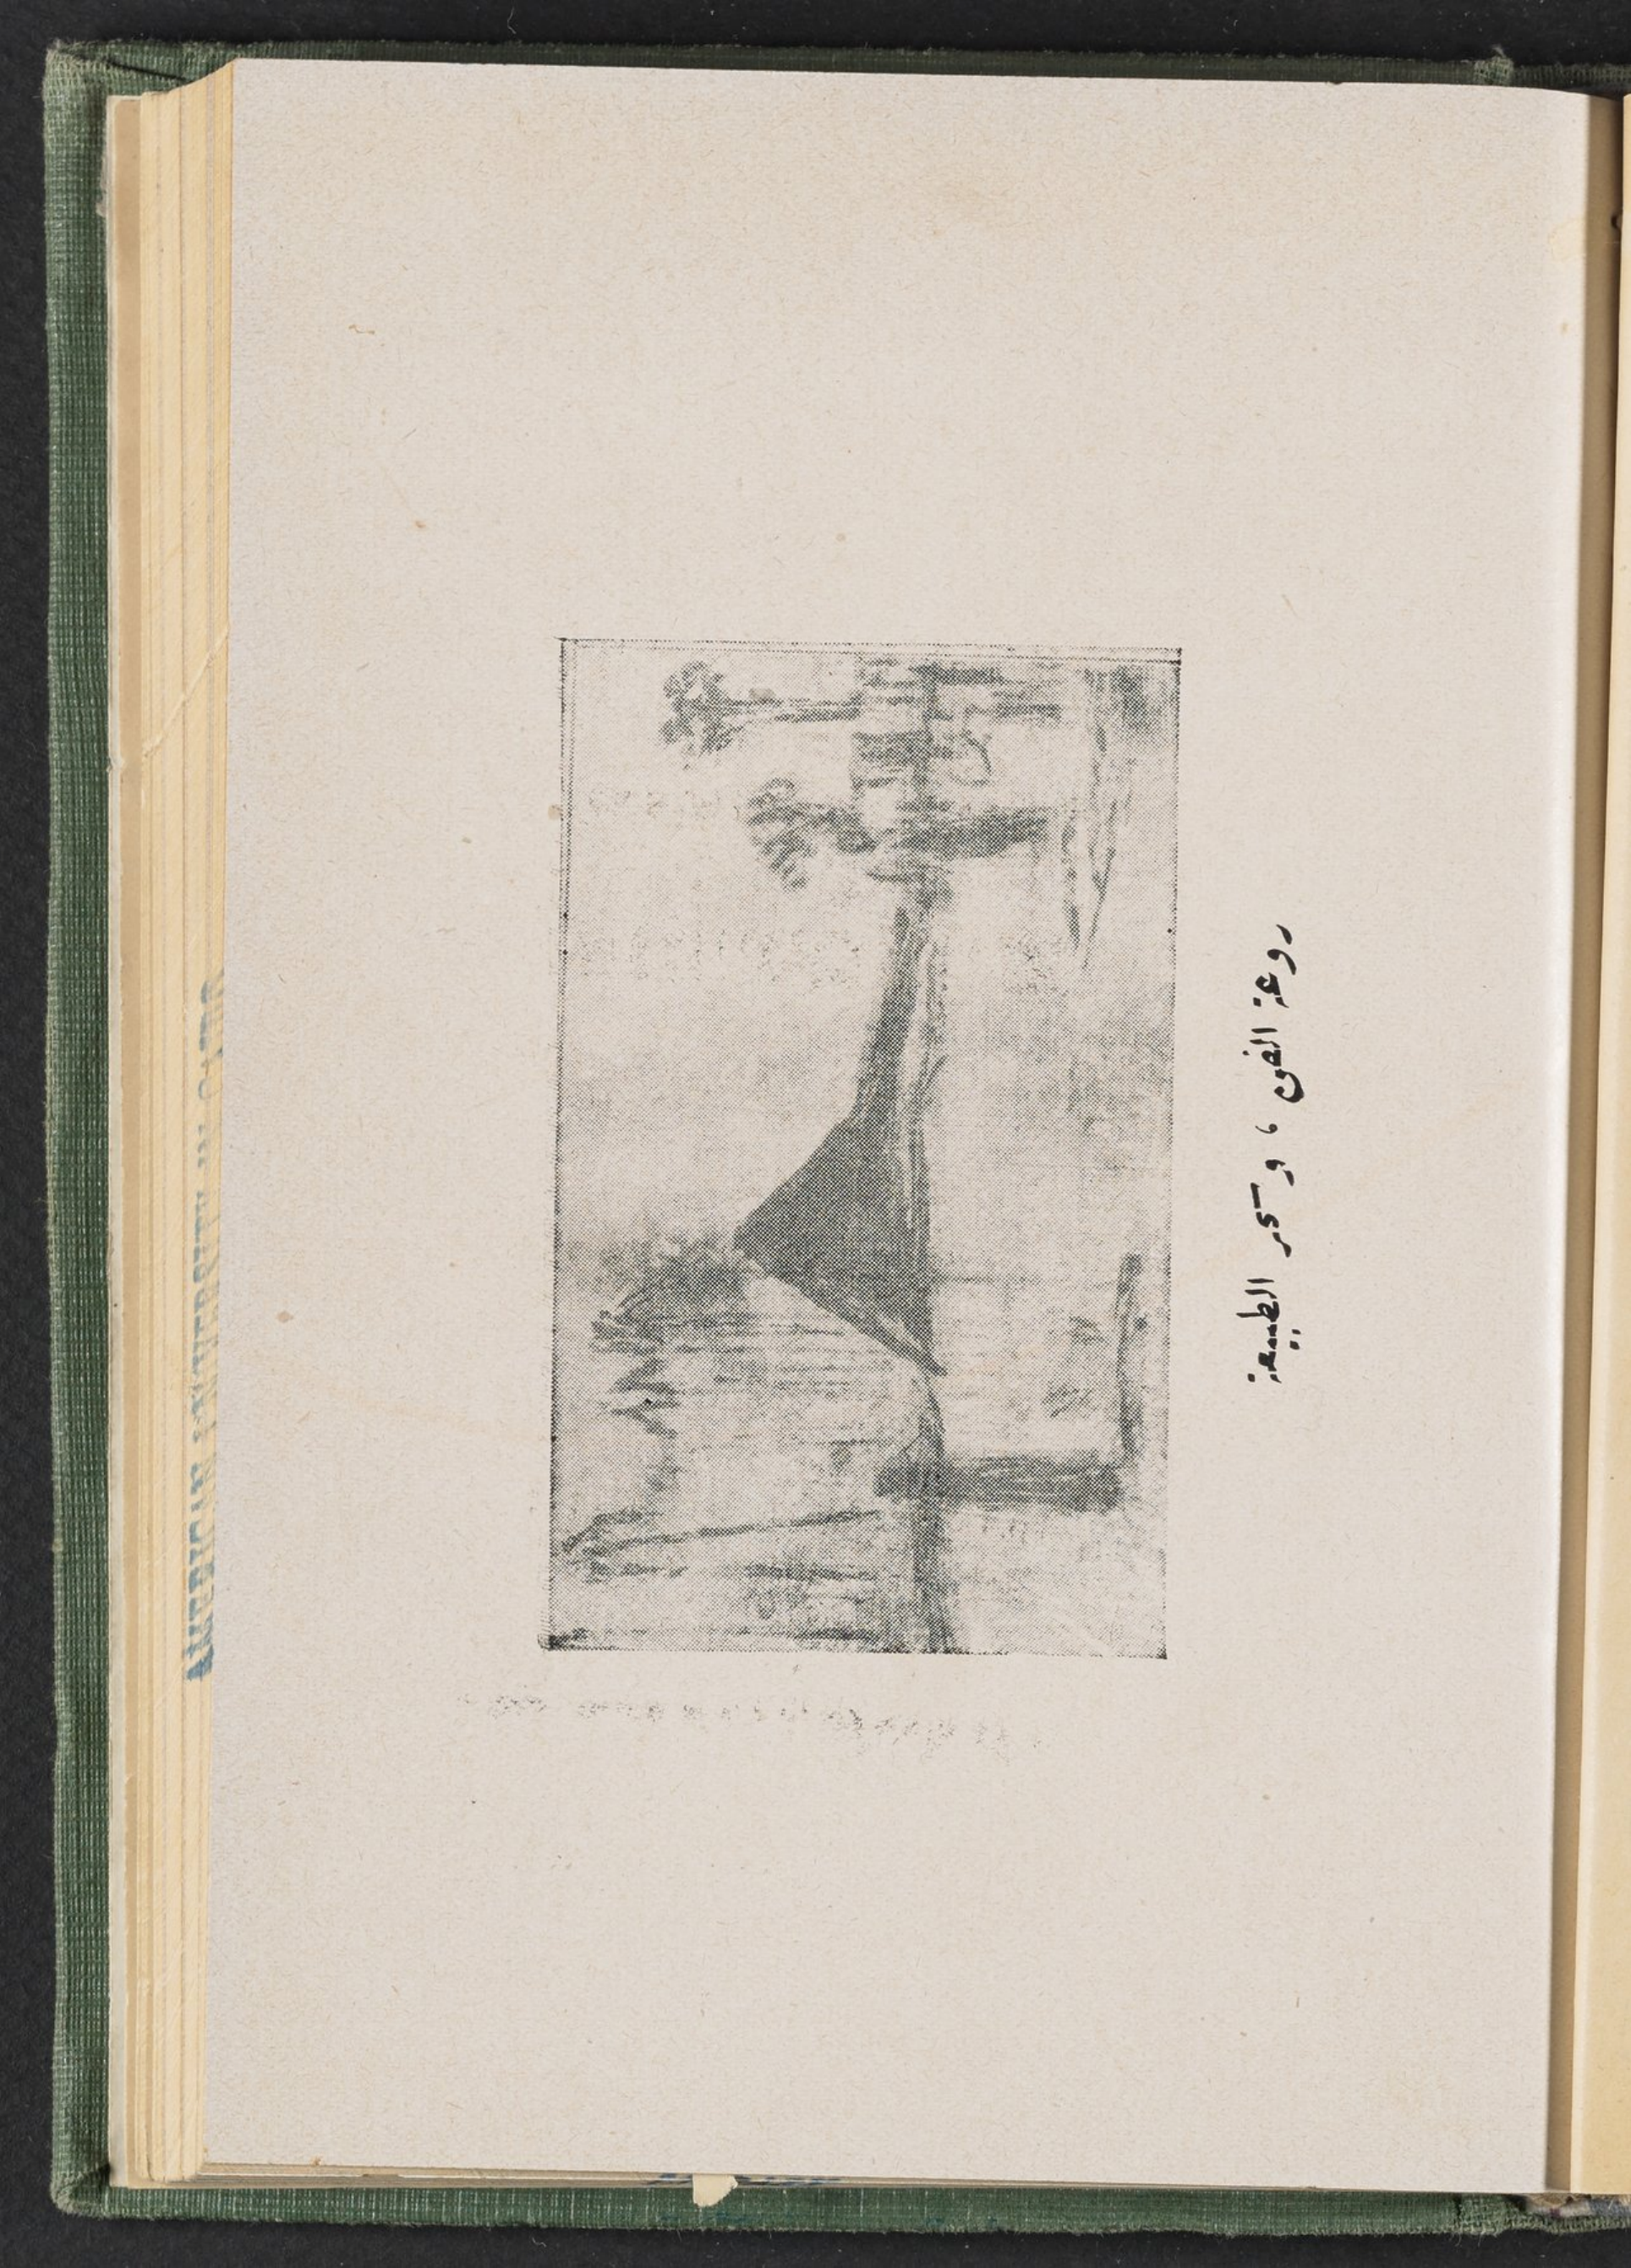 روعة الفن ، وسحر الطبيعة
AMERICAN UNIVERSITY IN CAIRO